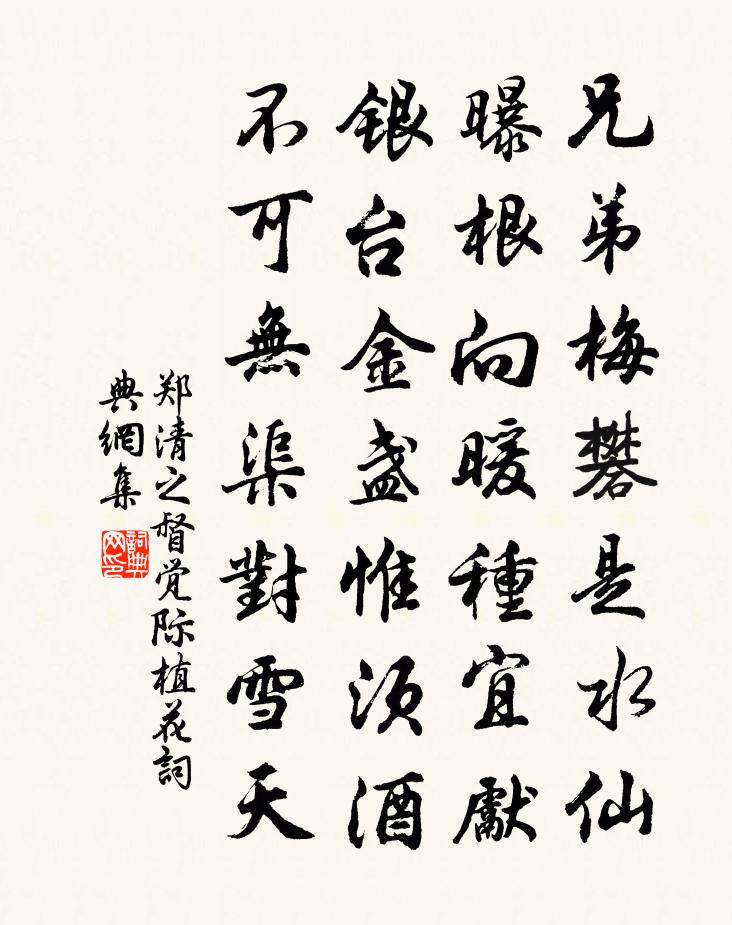 兄弟梅礬是水仙
曝根向暖種宜獻
銀台金盞惟須酒
不可無渠對雪天
郑清之督觉际植花詞
典網集
詞典网印